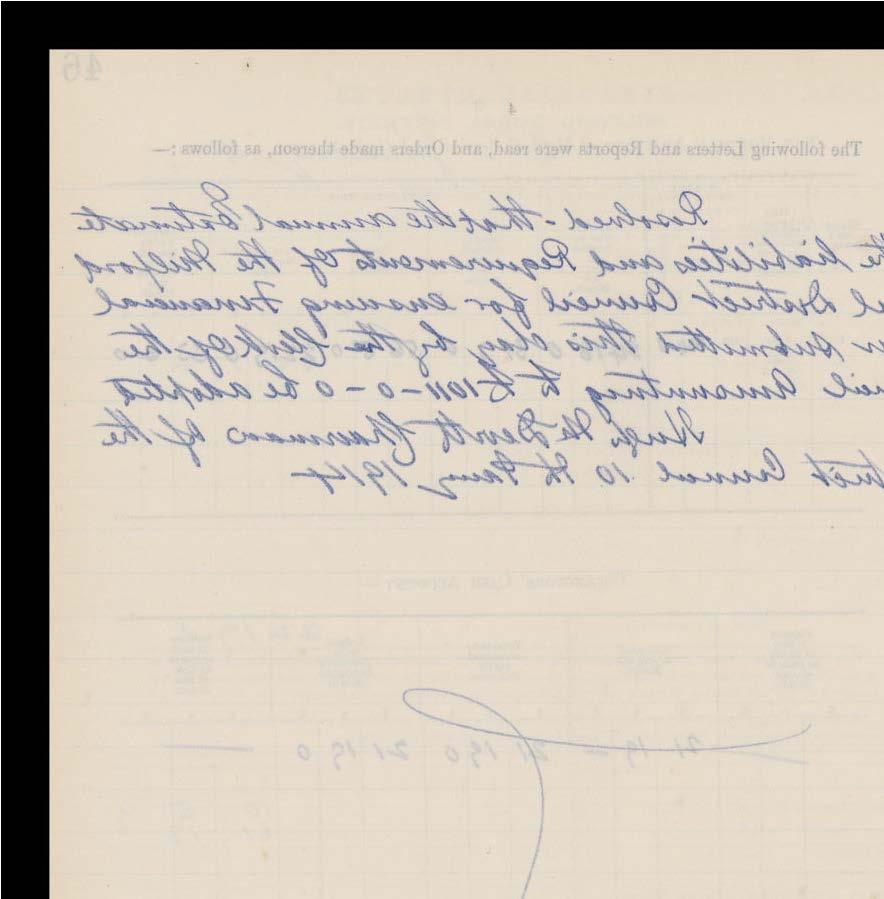 46
4
The following Letters and Reports were read, and Orders made thereon, as follows :—
Resolved - that the annual Estimate
he liabilities and Requirements of the Milford
l District Council for ensuing Financial
r submitted this day by the Clerk of the
cil amounting to £1011-0-0 be adopted
Hugh Chairman of the
trict Council 10th Jany 1914
21 19 — 21 19 0 21 19 0